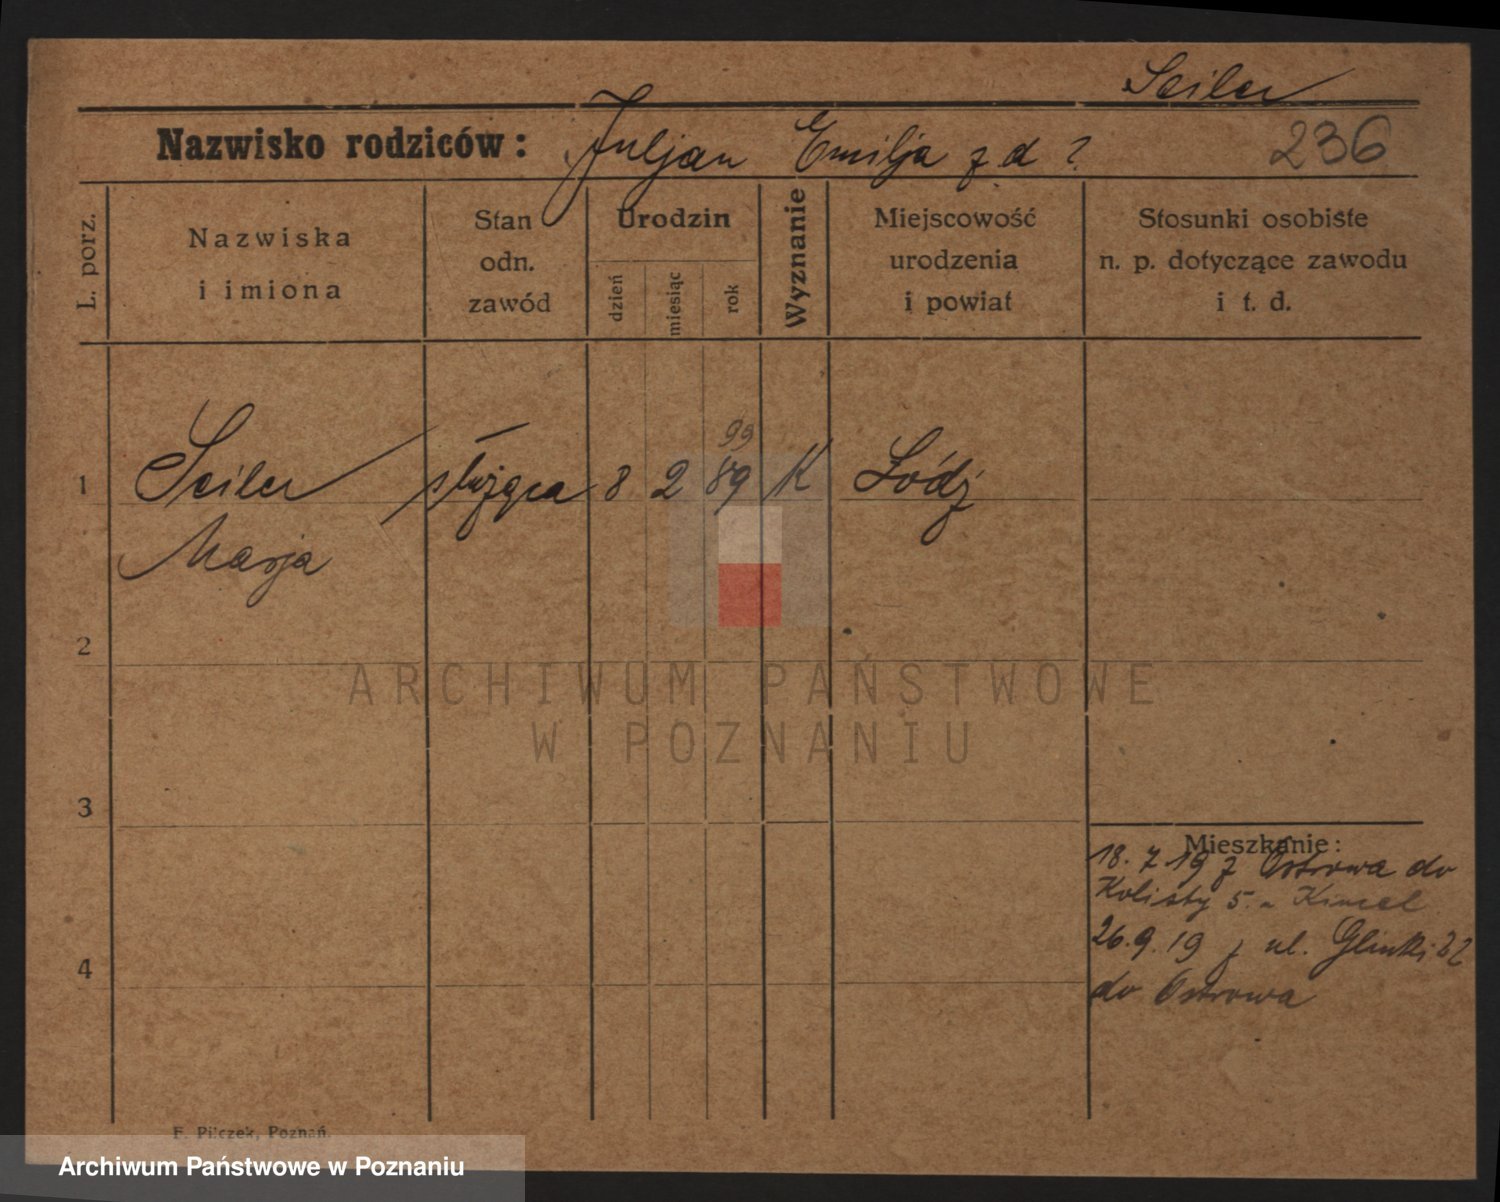 Seiler
Nazwisko rodziców: Juljan Emilja z d ?
236
L. porz.
Nazwiska
i imiona
Stan
odn.
zawód
Urodzin
dzień
miesiąc
rok
Wyznanie
Miejscowość
urodzenia
i powiat
Stosunki osobiste
n. p. dotyczące zawodu
i t. d.
99
1 Seiler służąca 8 2 89 K Łódź
Marja
2
3
4
Mieszkanie:
18. 7. 19 z Ostrowa do
Kolisty 5.
26. 9. 19 z ul. Glinki 22
do Ostrowa
F. Pilczek, Poznań.
ARCHIWUM PAŃSTWOWE
W POZNANIU
Archiwum Państwowe w Poznaniu